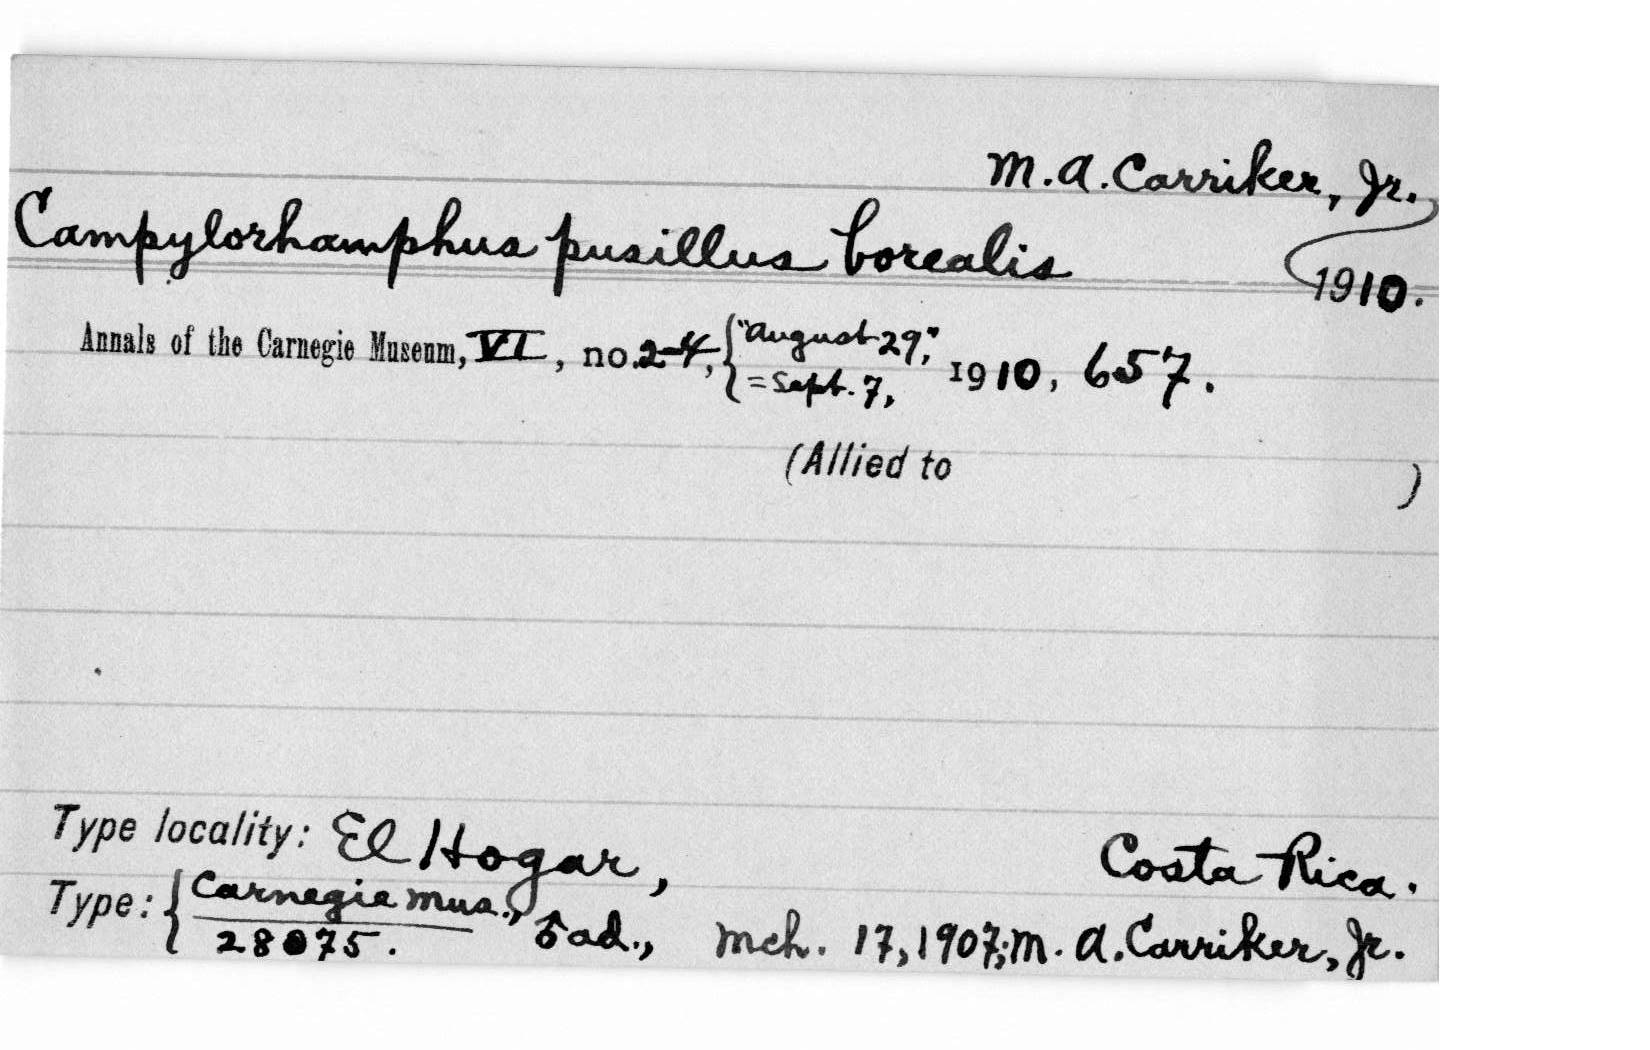 M. A. Carriker, Jr.,
Campylorhamphus pusillus borealis
1910.
Annals of the Carnegie Museum, VI, no. 2-4, { "August 29," = Sept. 7, 1910, 657.
(Allied to )
Type locality: El Hogar, Costa Rica.
Type: { Carnegie Mus., ♂ ad., Mch. 17, 1907; M. A. Carriker, Jr.
28075.